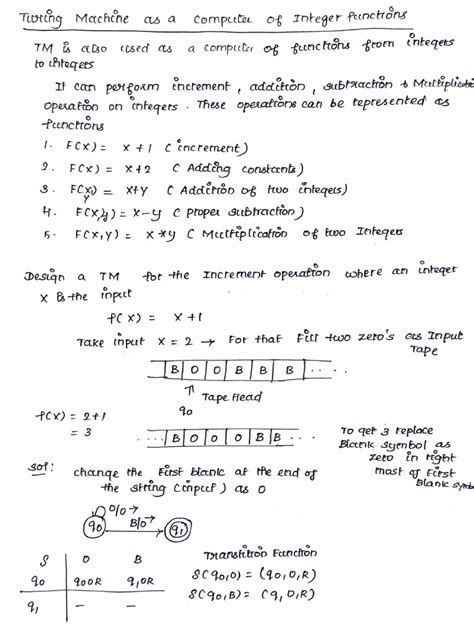 Turing Machine as a Computer of Integer functions
TM is also used as a computer of functions from integers
to integers
It can perform increment, addition, subtraction & Multiplicati
operation on integers. These operations can be represented as
functions
1. F(x) = x+1 (increment)
2. F(x) = x+2 (Adding constants)
3. F(x,y) = x+y (Addition of two integers)
4. F(x,y) = x-y (proper subtraction)
5. F(x,y) = x*y (Multiplication of two Integers
Design a TM for the Increment operation where an integer
x is the input
f(x) = x+1
Take input x = 2 → For that Fill two zero's as Input
Tape
B 0 0 B B B ....
↑ Tape Head
q0
f(x) = 2+1
= 3
.... B 0 0 0 B B ...
To get 3 replace
Blank symbol as
zero in right
most of First
Blank symb
sol: change the First blank at the end of
the string (input) as 0
0/0→
q0 B/0→ q1
δ 0 B
q0 q00R q10R
q1 — —
Transition Function
δ(q0,0) = (q0,0,R)
δ(q0,B) = (q1,0,R)